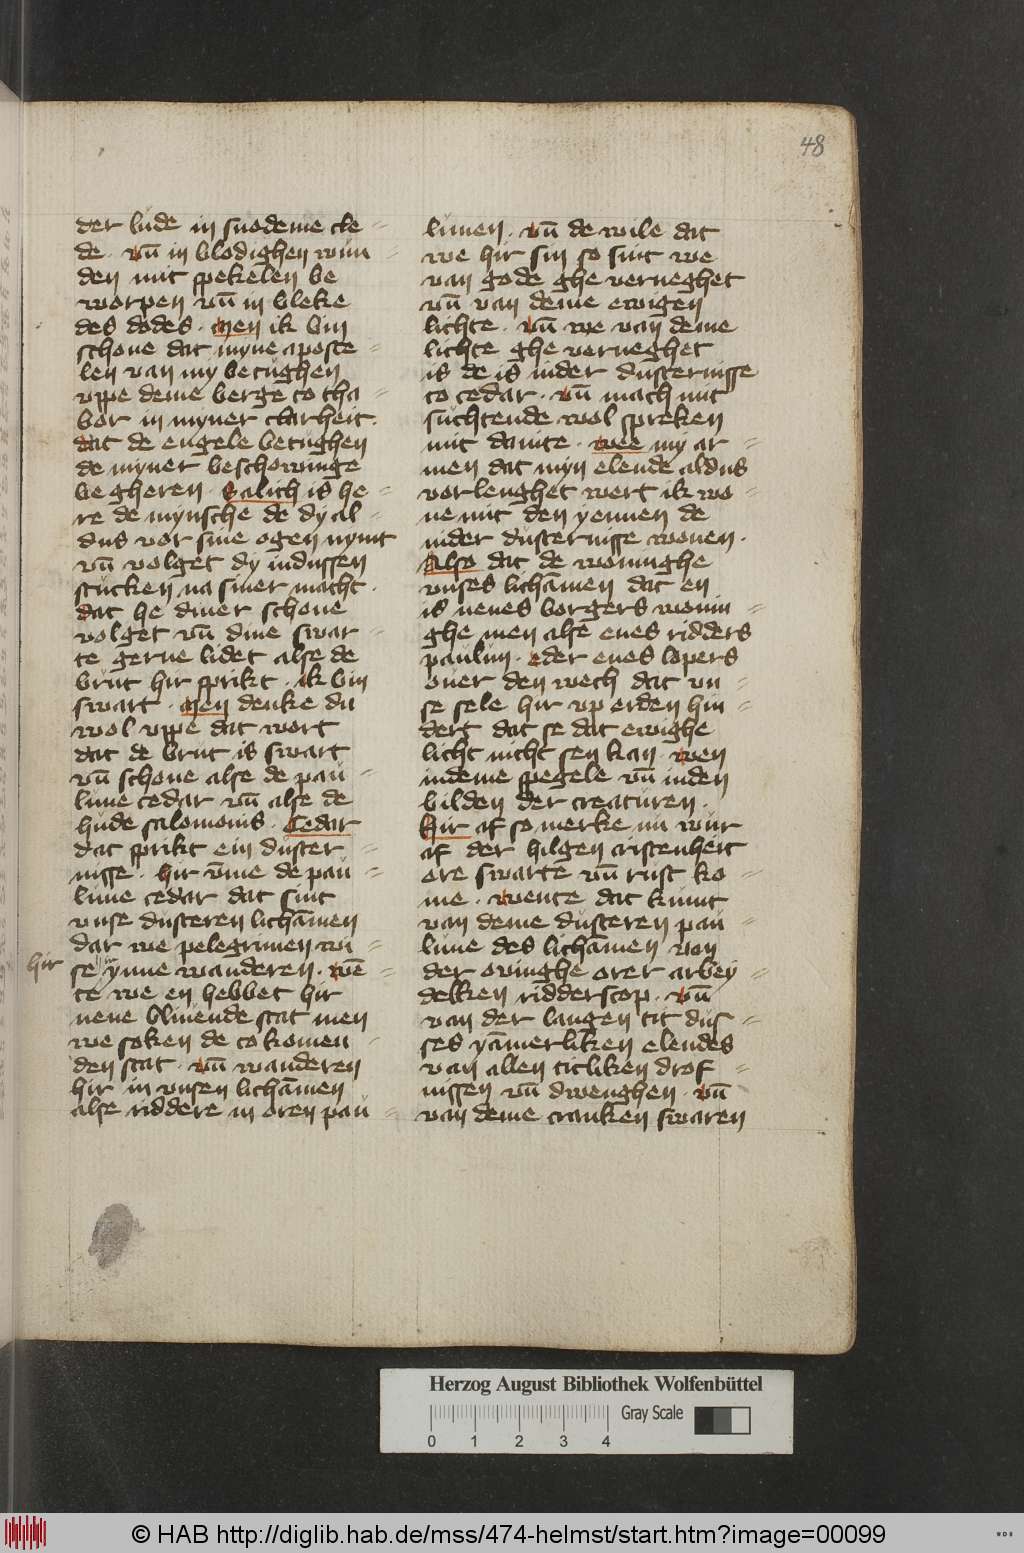 48
der lude in snodeme cle=
de · vn̄ in blodighen wun
den mit spekelen be
worpen vn̄ in bleke
des dodes · Men ik bin
schone dat myne aposte=
len van my betughen
vppe deme berge to tha=
bor in myner clarheit ·
dat de engele betughen
de myner beschowinge
be gheren · Salich is he=
re de mynsche de dy al=
dus vor sine ogen nymt
vn̄ volget dy indussen
stucken na siner macht ·
dat he diner schone
volget vn̄ dine swar=
te gerne lidet alse de
brut hir sprikt · ik bin
swart · Men denke du
wol vppe dat wort
dat de brut is swart
vn̄ schone alse de pau=
lune cedar vn̄ alse de
hude salomonis · Cedar
dat sprikt ein duster=
nisse · hir v̄me de pau=
lune cedar dat sint
vnse dusteren lichāmen
dar we pelegrimen vn=
hir
se ynne wanderen · wē=
te we en hebbet hir
nene bliuende stat men
we soken de to komen=
den stat · vn̄ wanderen
hir in vnsen lichāmen
alse riddere in oren pau=
lunen · vn̄ de wile dat
we hir sin so sint we
van gode ghe verneghet
vn̄ van deme ewigen
lichte · vn̄ we van deme
lichte ghe verneghet
is de is inder dusternisse
to cedar · vn̄ mach mit
suchtende wol spreken
mit dauite · wee my ar=
men dat myn elende aldus
vorlenghet wert ik wo=
ne mit den yennen de
inder dusternisse wonen ·
Also dat de woninghe
vnses lichāmen dat en
is nenes borgers wonin=
ghe men alse enes ridders
paulun · eder enes lopers
ouer den wech dat vn=
se sele hir vp erden hin=
dert dat se dat ewighe
licht nicht sen kan · wen
indeme spegele vn̄ inden
bilden der creaturen ·
Hir af so merke nu wur
af der hilgen cristenheit
ore swarte vn̄ rust ko=
me · wente dat kumt
van deme dusteren pau=
lune des lichāmen von
der ouinghe orer arbey=
delken ridderscop · vn̄
van der langen tit dus=
ses yāmerliken elendes
van allen titliken drof=
nissen vn̄ dwenghen · vn̄
van deme cranken swaren
Herzog August Bibliothek Wolfenbüttel
Gray Scale
0 1 2 3 4
© HAB http://diglib.hab.de/mss/474-helmst/start.htm?image=00099